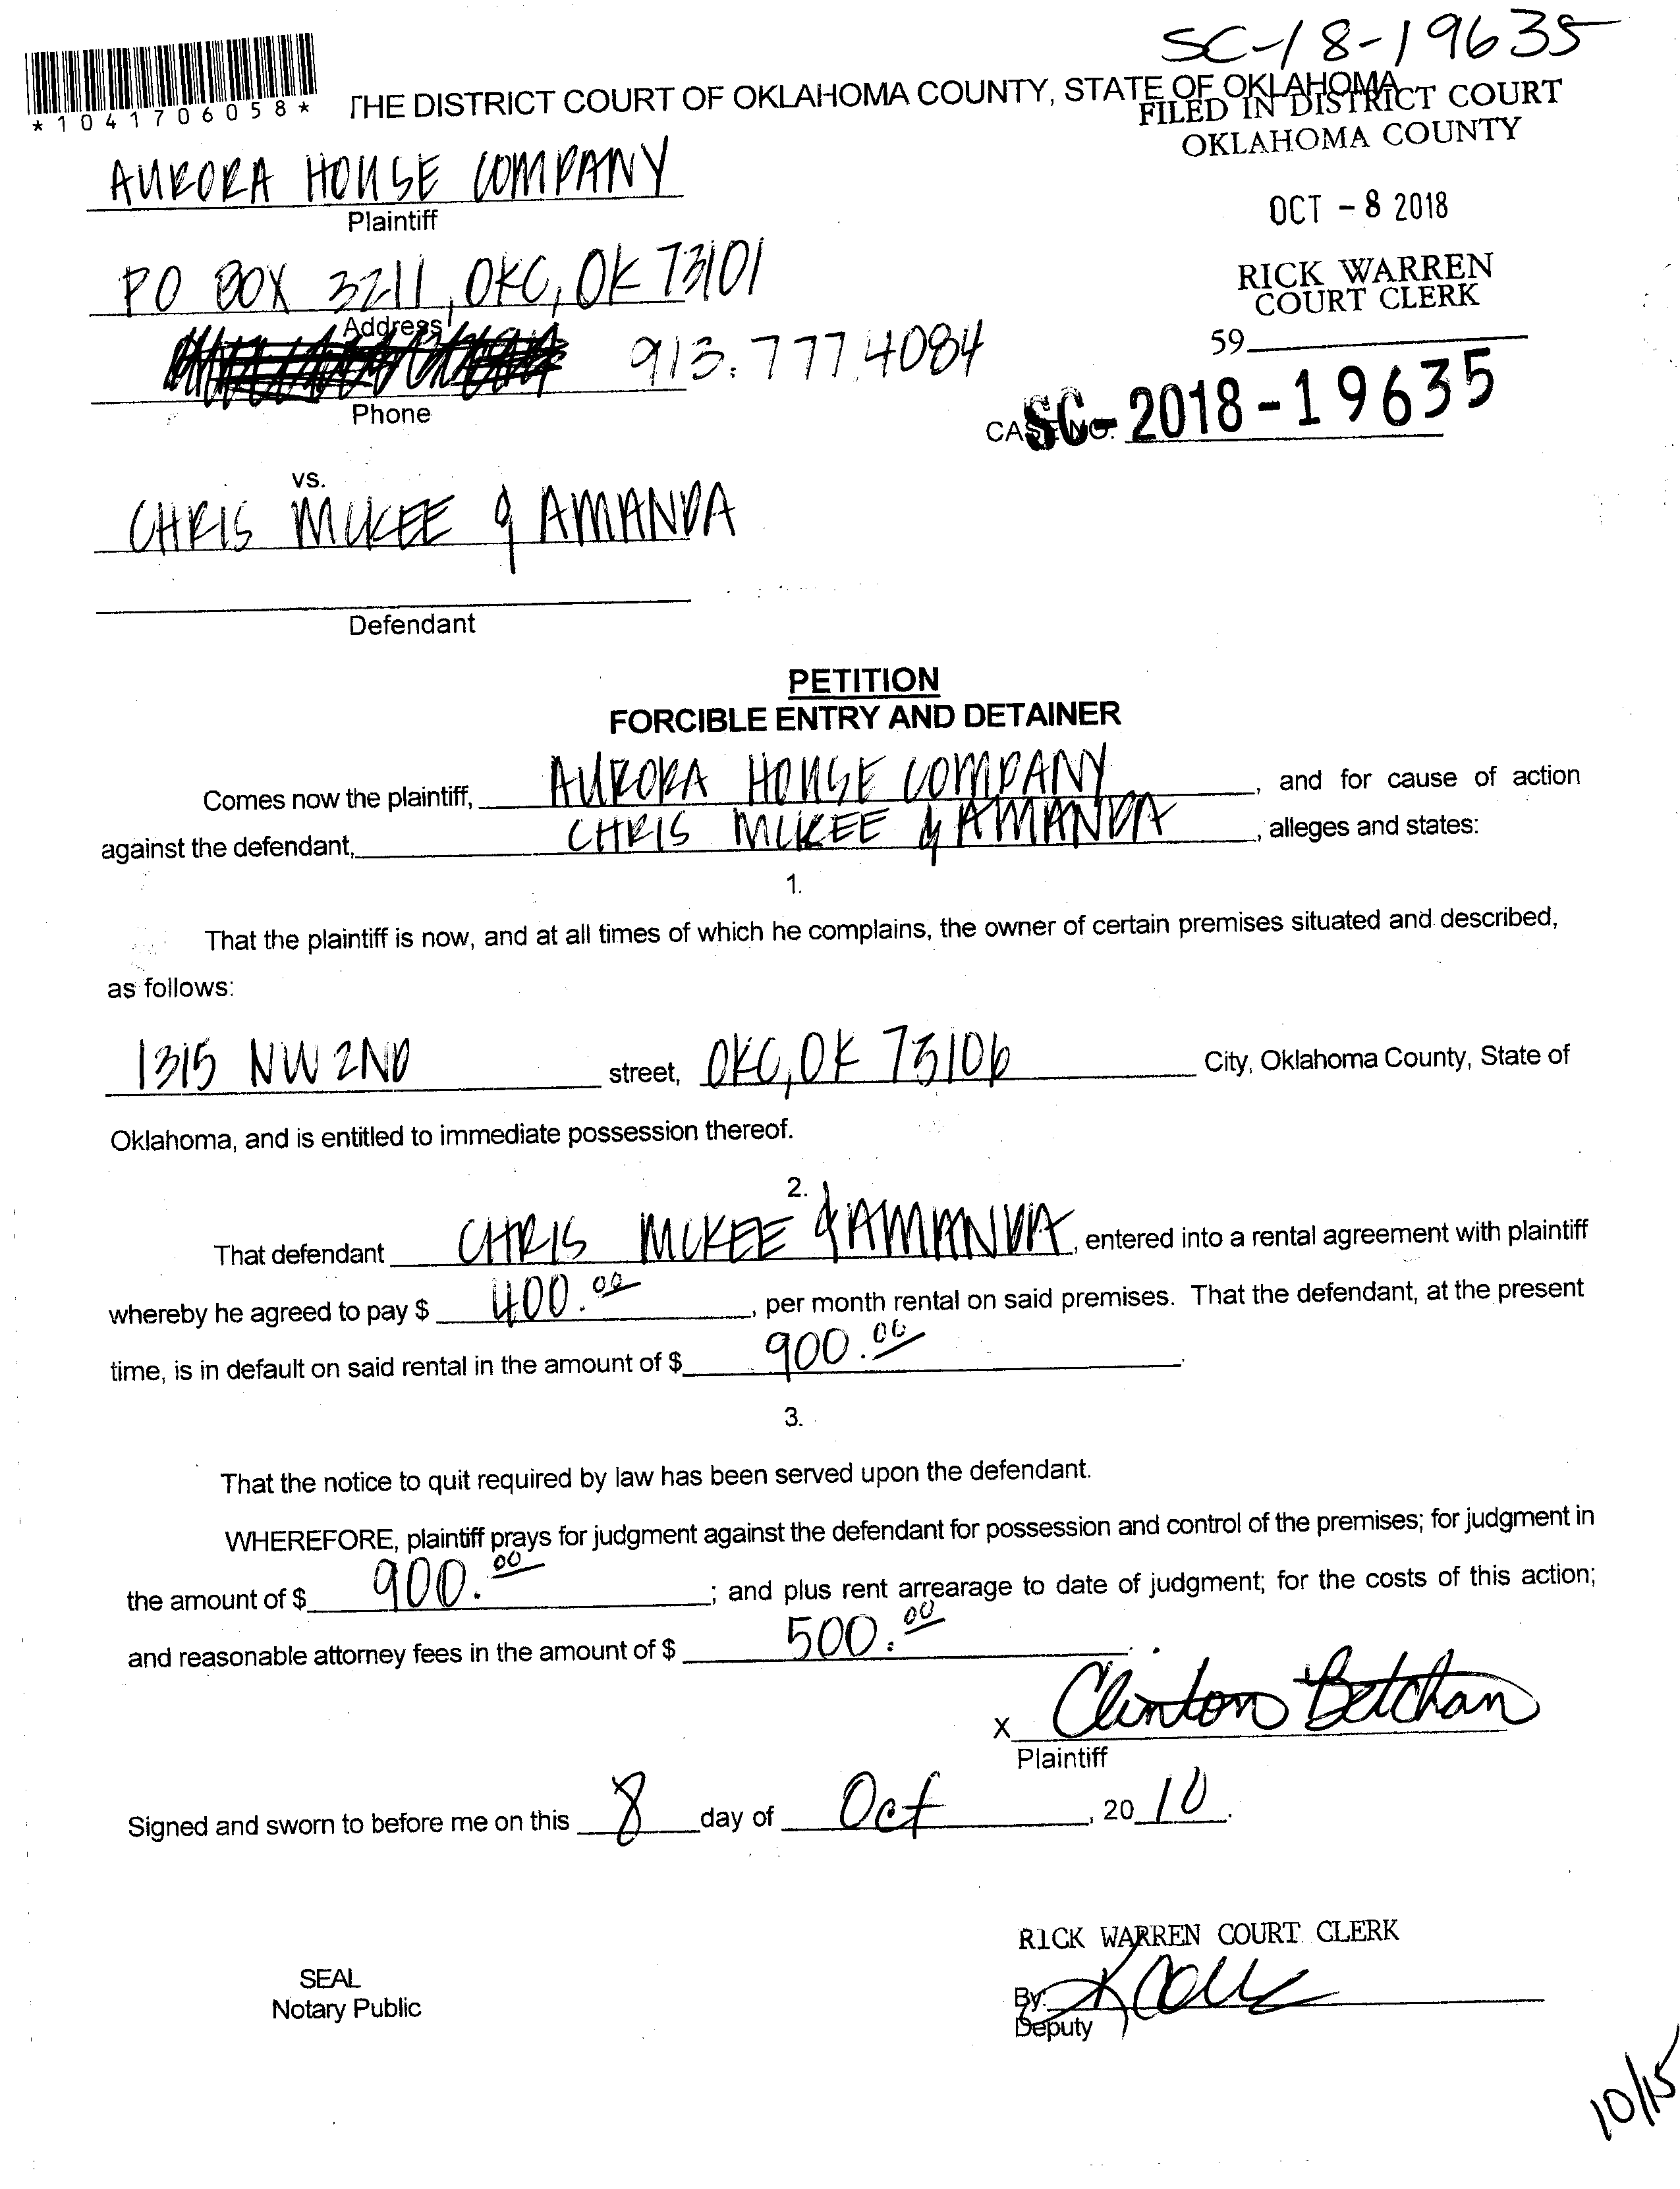 SC-18-19635
*1041706058*
THE DISTRICT COURT OF OKLAHOMA COUNTY, STATE OF OKLAHOMA
FILED IN DISTRICT COURT
OKLAHOMA COUNTY
AURORA HOUSE COMPANY
Plaintiff
OCT - 8 2018
PO BOX 3211, OKC, OK 73101
Address
RICK WARREN
COURT CLERK
59
913.777.4084
Phone
CASE NO. SC-2018-19635
vs.
CHRIS MCKEE & AMANDA
Defendant
PETITION
FORCIBLE ENTRY AND DETAINER
Comes now the plaintiff, AURORA HOUSE COMPANY, and for cause of action
against the defendant, CHRIS MCKEE & AMANDA, alleges and states:
1.
That the plaintiff is now, and at all times of which he complains, the owner of certain premises situated and described,
as follows:
1315 NW 2ND street, OKC, OK 73106 City, Oklahoma County, State of
Oklahoma, and is entitled to immediate possession thereof.
2.
That defendant CHRIS MCKEE & AMANDA, entered into a rental agreement with plaintiff
whereby he agreed to pay $ 400.00, per month rental on said premises. That the defendant, at the present
time, is in default on said rental in the amount of $ 900.00.
3.
That the notice to quit required by law has been served upon the defendant.
WHEREFORE, plaintiff prays for judgment against the defendant for possession and control of the premises; for judgment in
the amount of $ 900.00; and plus rent arrearage to date of judgment; for the costs of this action;
and reasonable attorney fees in the amount of $ 500.00.
X Clinton Betchan
Plaintiff
Signed and sworn to before me on this 8 day of Oct, 2010.
RICK WARREN COURT CLERK
SEAL
Notary Public
By:
Deputy
10/15